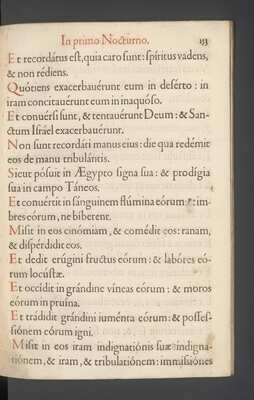 In primo Nocturno. 153
Et recordátus est, quia caro sunt: spíritus vadens,
& non rédiens.
Quóties exacerbavérunt eum in desérto: in
iram concitavérunt eum in inaquóso.
Et convérsi sunt, & tentavérunt Deum: & San-
ctum Israël exacerbavérunt.
Non sunt recordáti manus ejus: die qua redémit
eos de manu tribulántis.
Sicut pósuit in Ægypto signa sua: & prodígia
sua in campo Táneos.
Et convértit in sánguinem flúmina eórum: & im-
bres eórum, ne bíberent.
Misit in eos cinómiam, & comédit eos: ranam,
& dispérdidit eos.
Et dedit erúgini fructus eórum: & labóres eó-
rum locústæ.
Et occídit in grándine víneas eórum: & moros
eórum in pruína.
Et trádidit grándini juménta eórum: & posses-
siónem eórum igni.
Misit in eos iram indignatiónis suæ: indigna-
tiónem, & iram, & tribulatiónem: immissiónes